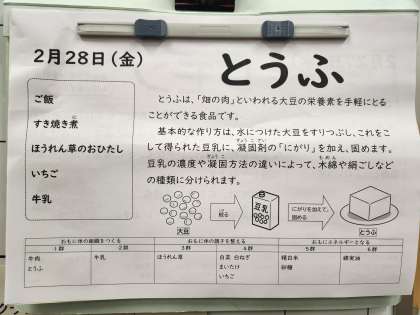 2月28日(金)
とうふ
ご飯
すき焼き煮
ほうれん草のおひたし
いちご
牛乳
とうふは、「畑の肉」といわれる大豆の栄養素を手軽にとる
ことができる食品です。
基本的な作り方は、水につけた大豆をすりつぶし、これをこ
して得られた豆乳に、凝固剤の「にがり」を加え、固めます。
豆乳の濃度や凝固方法の違いによって、木綿や絹ごしなど
の種類に分けられます。
大豆
絞る
豆乳
にがりを加えて、
固める
とうふ
おもに体の組織をつくる
おもに体の調子を整える
おもにエネルギーとなる
1群 2群 3群 4群 5群 6群
牛肉 牛乳 ほうれん草 白菜 白ねぎ 精白米 綿実油
とうふ まいたけ 砂糖
いちご